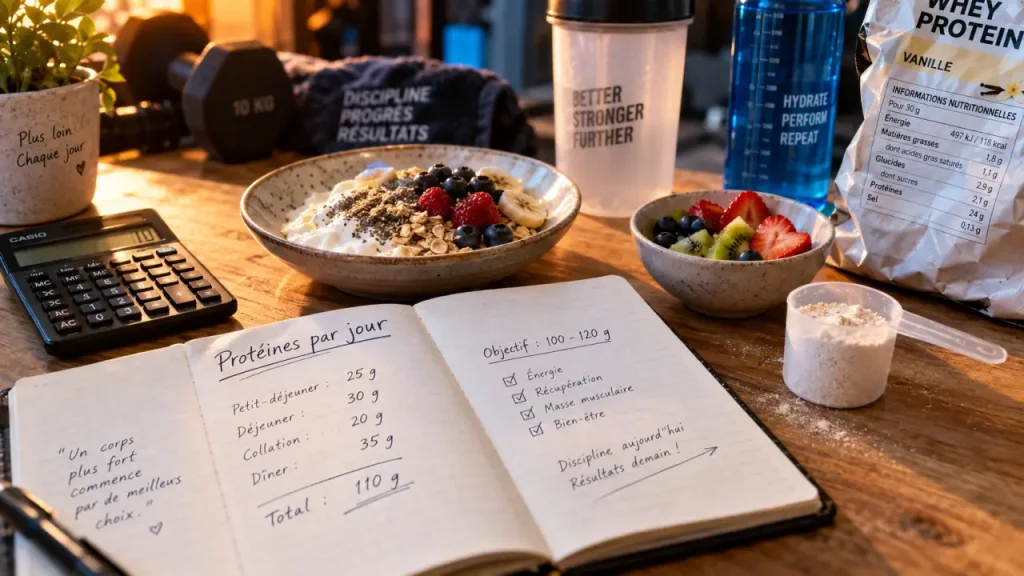 Plus loin
Chaque jour
10 KG
DISCIPLINE
PROGRÈS
RÉSULTATS
BETTER
STRONGER
FURTHER
HYDRATE
PERFORM
REPEAT
WHEY
PROTEIN
VANILLE
INFORMATIONS NUTRITIONNELLES
Pour 30 g
Énergie 497 kJ / 118 kcal
Matières grasses 1,8 g
dont acides gras saturés 1,1 g
Glucides 2,9 g
dont sucres 2,1 g
Protéines 24 g
Sel 0,13 g
CASIO
MC
AC
AC
"Un corps
plus fort
commence
par de meilleurs
choix."
Protéines par jour
Petit-déjeuner : 25 g
Déjeuner : 30 g
Collation : 20 g
Dîner : 35 g
Total : 110 g
Objectif : 100 - 120 g
Énergie
Récupération
Masse musculaire
Bien-être
Discipline aujourd'hui
Résultats demain !